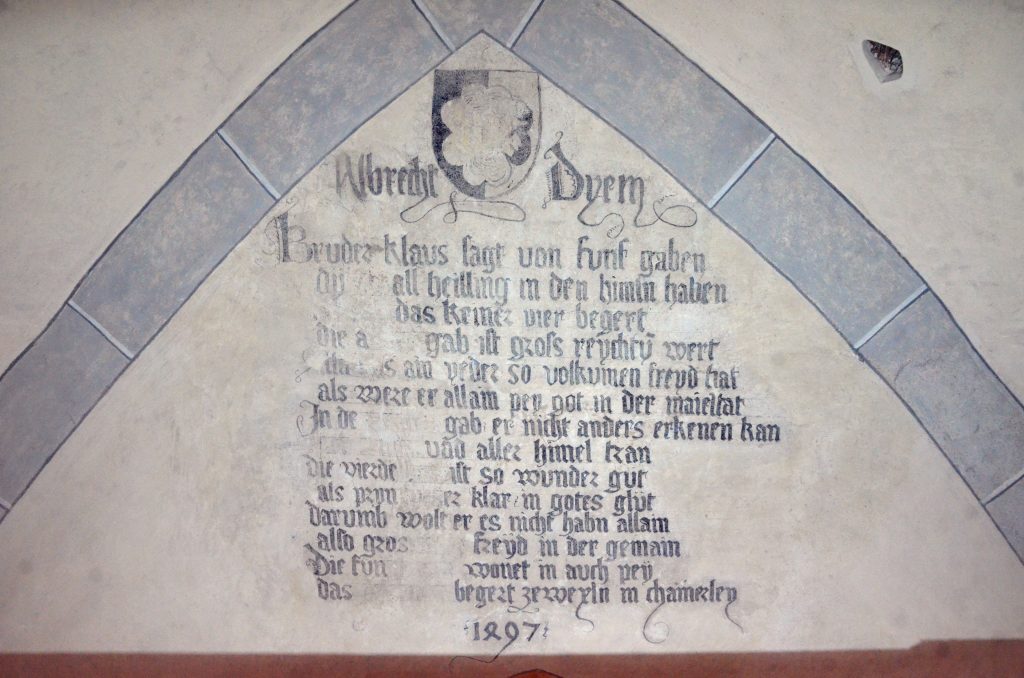 Albrecht Dyem
Bruder klaus sagt von funf gaben
all heilling in den himln haben
das keiner vier begert
die gab ist gross reychtu wert
ain yeder so volkumen freyd hat
als were er allain pey got in der maiestat
In de gab er nicht anders erkenen kan
vnd aller himel tran
die vierde ist so wunder gut
als pryn klar in gotes glut
Darumb wolt er es nicht habn allain
also gros freyd in der gemain
Die fun wonet in auch pey
das begert zewexln in chamerley
1497